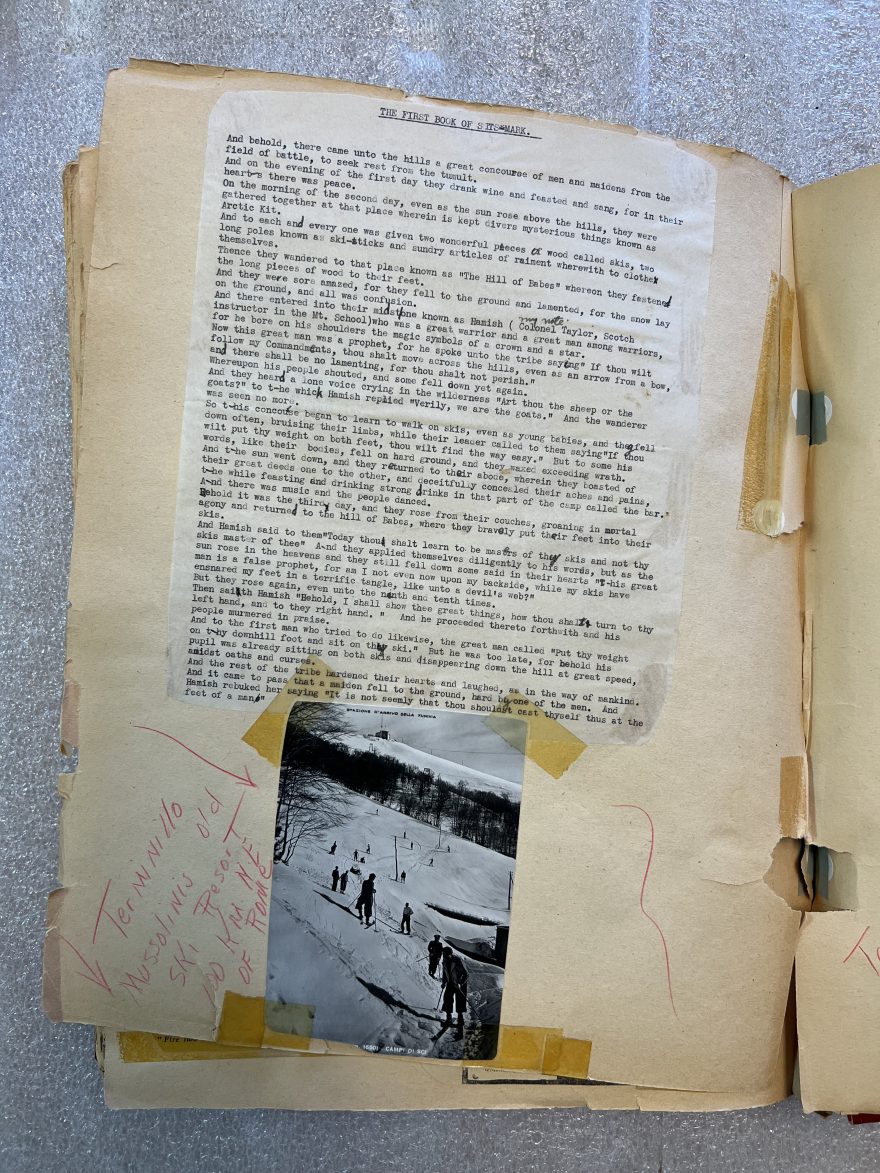 THE FIRST BOOK OF SITS-MARK.
And behold, there came unto the hills a great concourse of men and maidens from the
field of battle, to seek rest from the tumult.
And on the evening of the first day they drank wine and feasted and sang, for in their
hearts there was peace.
On the morning of the second day, even as the sun rose above the hills, they were
gathered together at that place wherein is kept divers mysterious things known as
Arctic Kit.
And to each and every one was given two wonderful pieces of wood called skis, two
long poles known as ski-sticks and sundry articles of raiment wherewith to clothe
themselves.
Thence they wandered to that place known as "The Hill of Babes" whereon they fastened
the long pieces of wood to their feet.
And they were sore amazed, for they fell to the ground and lamented, for the snow lay
on the ground, and all was confusion.
my note
And there entered into their midst one known as Hamish ( Colonel Taylor, Scotch
instructor in the Mt. School)who was a great warrior and a great man among warriors,
for he bore on his shoulders the magic symbols of a crown and a star.
Now this great man was a prophet, for he spoke unto the tribe saying" If thou wilt
follow my Commandments, thou shalt move across the hills, even as an arrow from a bow,
and there shall be no lamenting, for thou shalt not perish."
Whereupon his people shouted, and some fell down yet again.
And they heard a lone voice crying in the wilderness "Art thou the sheep or the
goats?" to t-he which Hamish replied "Verily, we are the goats." And the wanderer
was seen no more.
So t-his concouse began to learn to walk on skis, even as young babies, and they fell
down often, bruising their limbs, while their leader called to them saying"If thou
wilt put thy weight on both feet, thou wilt find the way easy." But to some his
words, like their bodies, fell on hard ground, and they waxed exceeding wrath.
And t-he sun went down, and they returned to their abode, wherein they boasted of
their great deeds one to the other, and deceitfully concealed their aches and pains,
t-he while feasting and drinking strong drinks in that part of the camp called the bar.
A-nd there was music and the people danced.
Behold it was the third day, and they rose from their couches, groaning in mortal
agony and returned to the hill of Babes, where they bravely put their feet into their
skis.
And Hamish said to them"Today thou shalt learn to be masters of thy skis and not thy
skis master of thee" A-nd they applied themselves diligently to his words, but as the
sun rose in the heavens and they still fell down some said in their hearts "T-his great
man is a false prophet, for am I not even now upon my backside, while my skis have
ensnared my feet in a terrific tangle, like unto a devil's web?"
But they rose again, even unto the ninth and tenth times.
Then saith Hamish "Behold, I shall show thee great things, how thou shalt turn to thy
left hand, and to they right hand. " And he proceeded thereto forthwith and his
people murmered in praise.
And to the first man who tried to do likewise, the great man called "Put thy weight
on t-hy downhill foot and sit on thy ski." But he was too late, for behold his
pupil was already sitting on both skis and disappearing down the hill at great speed,
amidst oaths and curses.
And the rest of the tribe hardened their hearts and laughed, as in the way of mankind.
And it came to pass that a maiden fell to the ground, hard by one of the men. And
Hamish rebuked her saying "It is not seemly that thou shouldst cast thyself thus at the
feet of a man"
STAZIONE D'ARRIVO DELLA FUNIVIA
Terminillo
Mussolinis old
SKI Resort
100 KM NE
OF ROME
CAMPI DI SCI